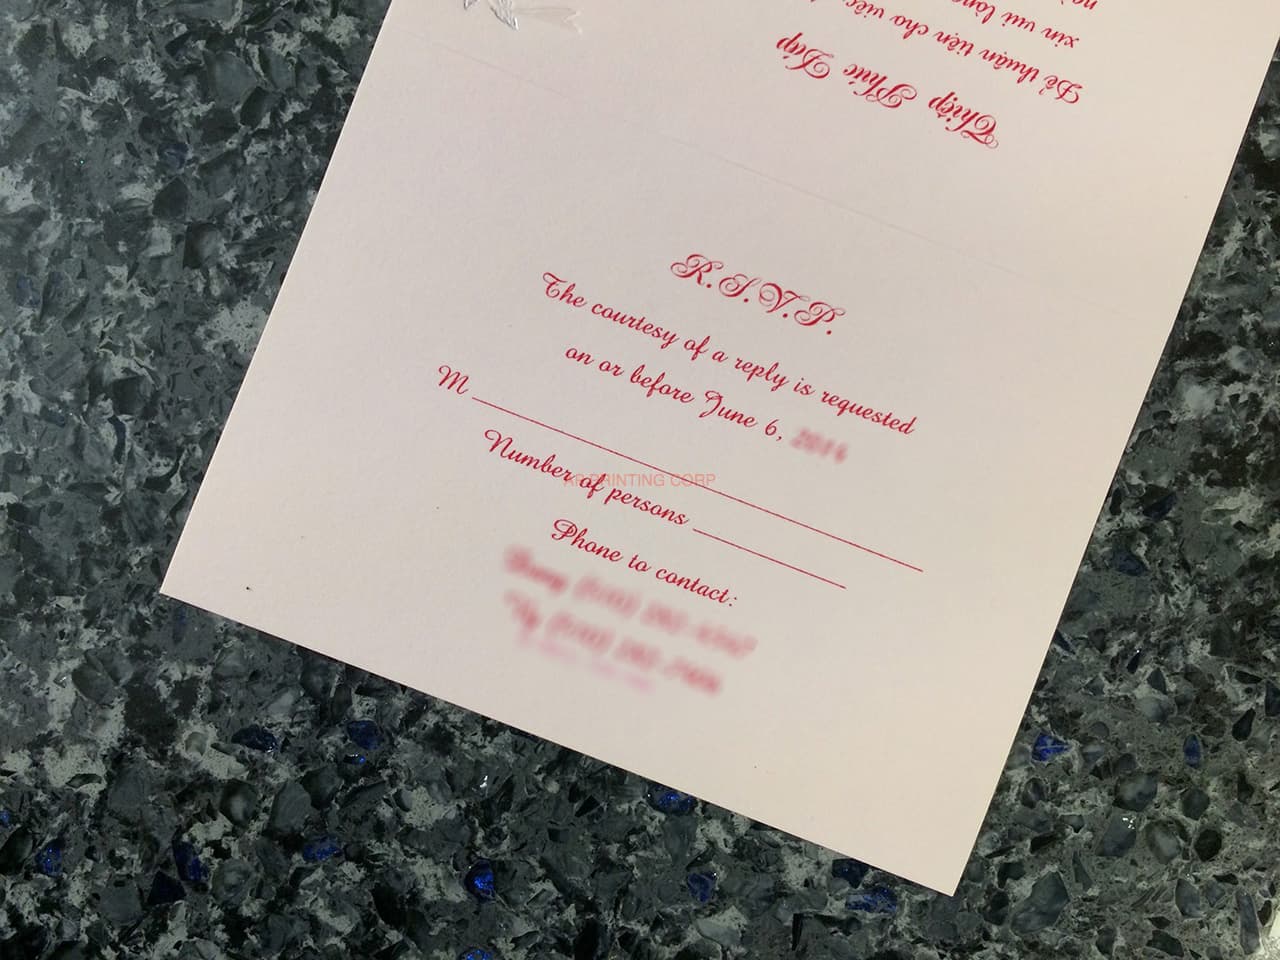 Thiệp Phúc Đáp
Để thuận tiện cho việc
xin vui lòng
R.S.V.P.
The courtesy of a reply is requested
on or before June 6,
M
Number of persons
Phone to contact:
PRINTING CORP